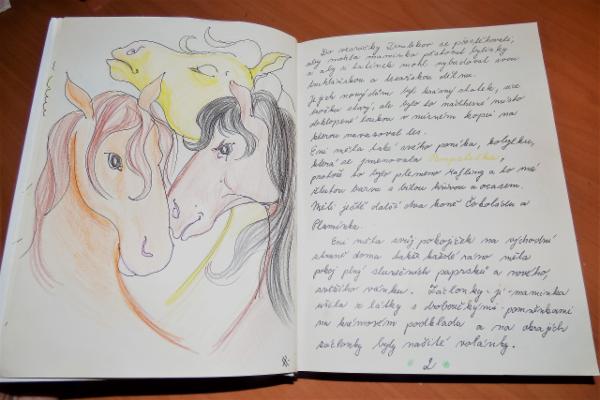 Do vesničky Zimlikov se přestěhovali,
aby mohla maminka pěstovat bylinky
a aby si tatínek mohl vybudovat svou
truhlářskou a tesařskou dílnu.
Jejich nový dům byl krásný statek, sice
trošku starý, ale bylo to nádherné místo
obklopené loukou v mírném kopci na
kterou navazoval les.
Emi měla také svého poníka, kobylku,
která se jmenovala Pampeliška,
protože to bylo plemeno Hafling a to má
žlutou barvu s bílou hřívou a ocasem.
Měli ještě další dva koně Čokoládu a
Plamínka.
Emi měla svůj pokojíček na východní
straně domu takže každé ráno měla
pokoj plný slunečních paprsků a nového,
svěžího vánku. Záclonky jí maminka
ušila z látky s drobounkými pomněnkami
na krémovém podkladu a na okrajích
záclonky byly našité volánky.
2